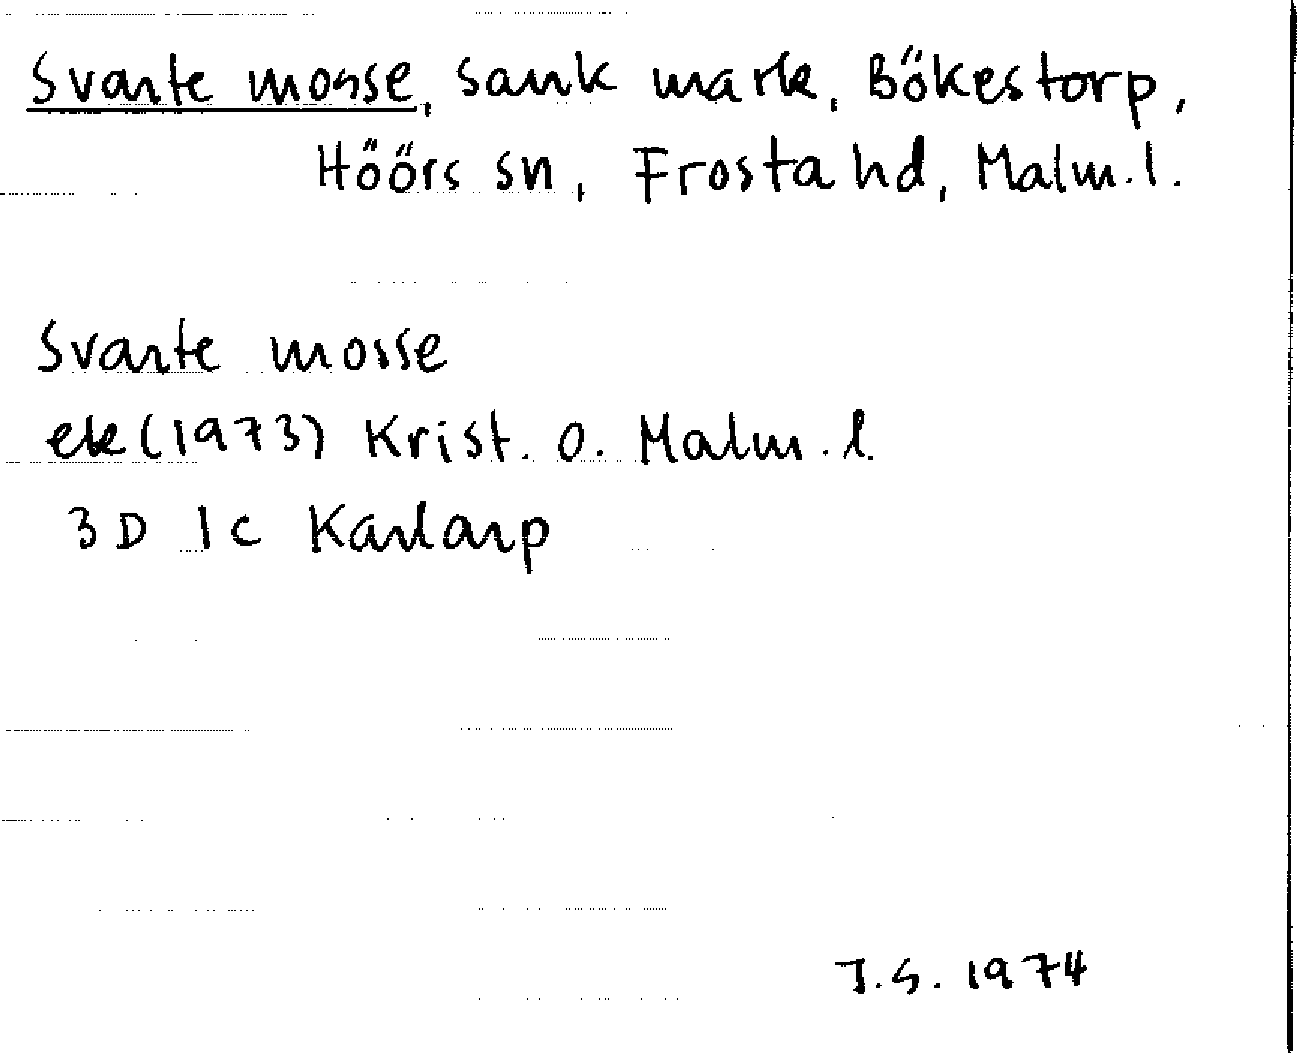 Svarte mosse, Sank mark, Bökestorp,
Höörs sn, Frosta hd, Malm. l.
Svarte mosse
ek (1973) Krist. o. Malm. l.
3D 1c Karlarp
J.S. 1974